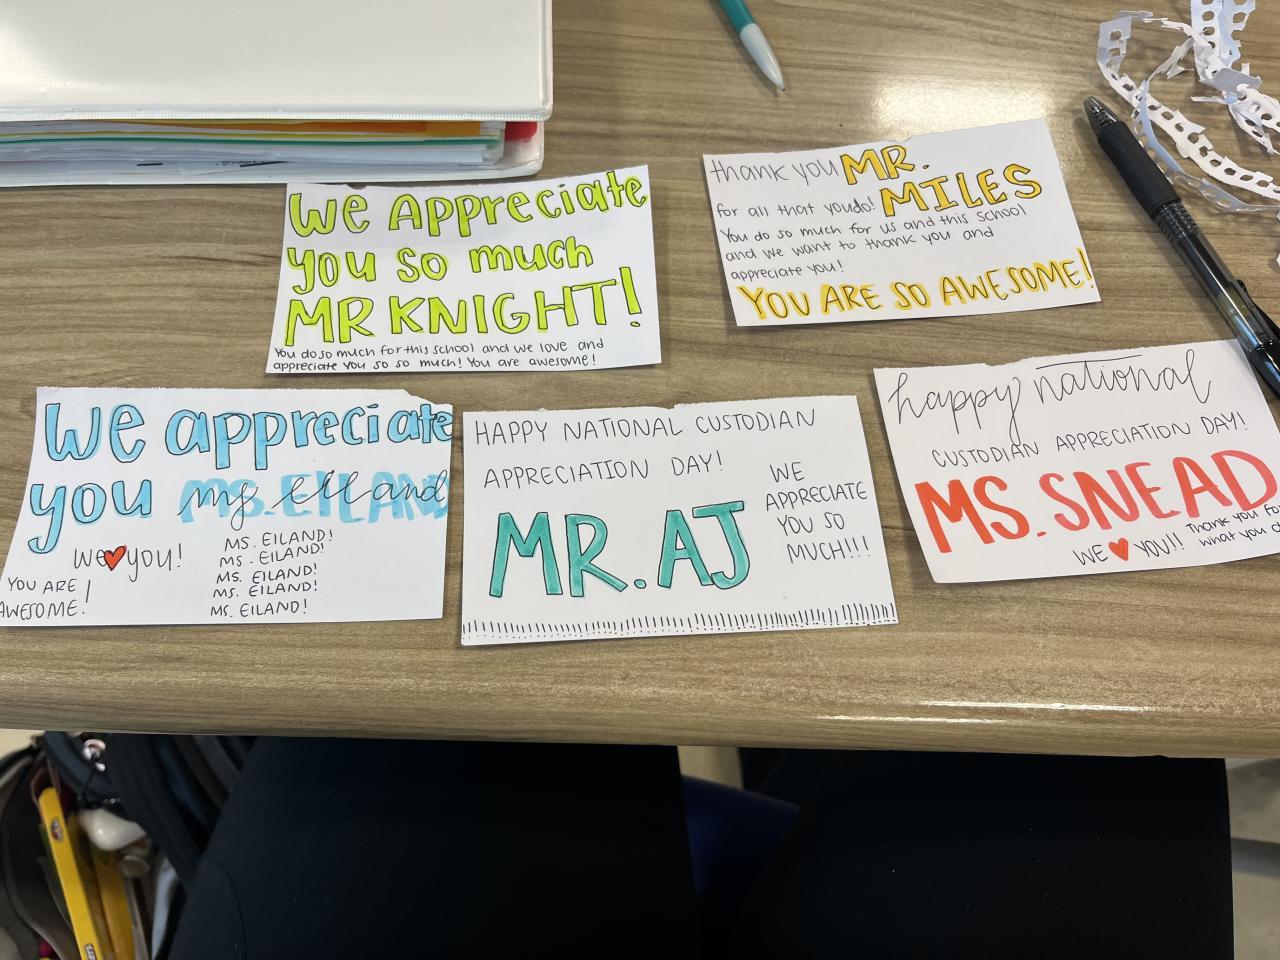 We Appreciate
you so much
MR KNIGHT!
You do so much for this school and we love and
appreciate you so so much! You are awesome!
thank you MR.
MILES
for all that you do!
You do so much for us and this school
and we want to thank you and
appreciate you!
YOU ARE SO AWESOME!
We appreciate
you MS. EILAND
ms eiland
We ♥ you!
YOU ARE
AWESOME!
MS. EILAND!
MS. EILAND!
MS. EILAND!
MS. EILAND!
MS. EILAND!
HAPPY NATIONAL CUSTODIAN
APPRECIATION DAY!
MR. AJ
WE
APPRECIATE
YOU SO
MUCH!!!
happy national
CUSTODIAN APPRECIATION DAY!
MS. SNEAD
WE ♥ YOU!!
Thank you for
what you do